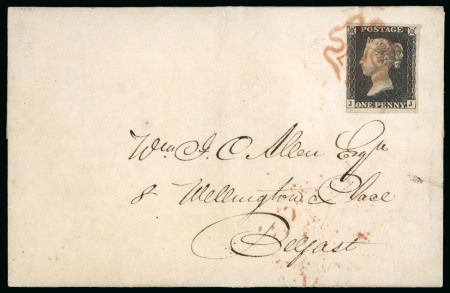 POSTAGE
J J
ONE PENNY
Wm. J. C. Allen Esqre
8 Wellington Place
Belfast